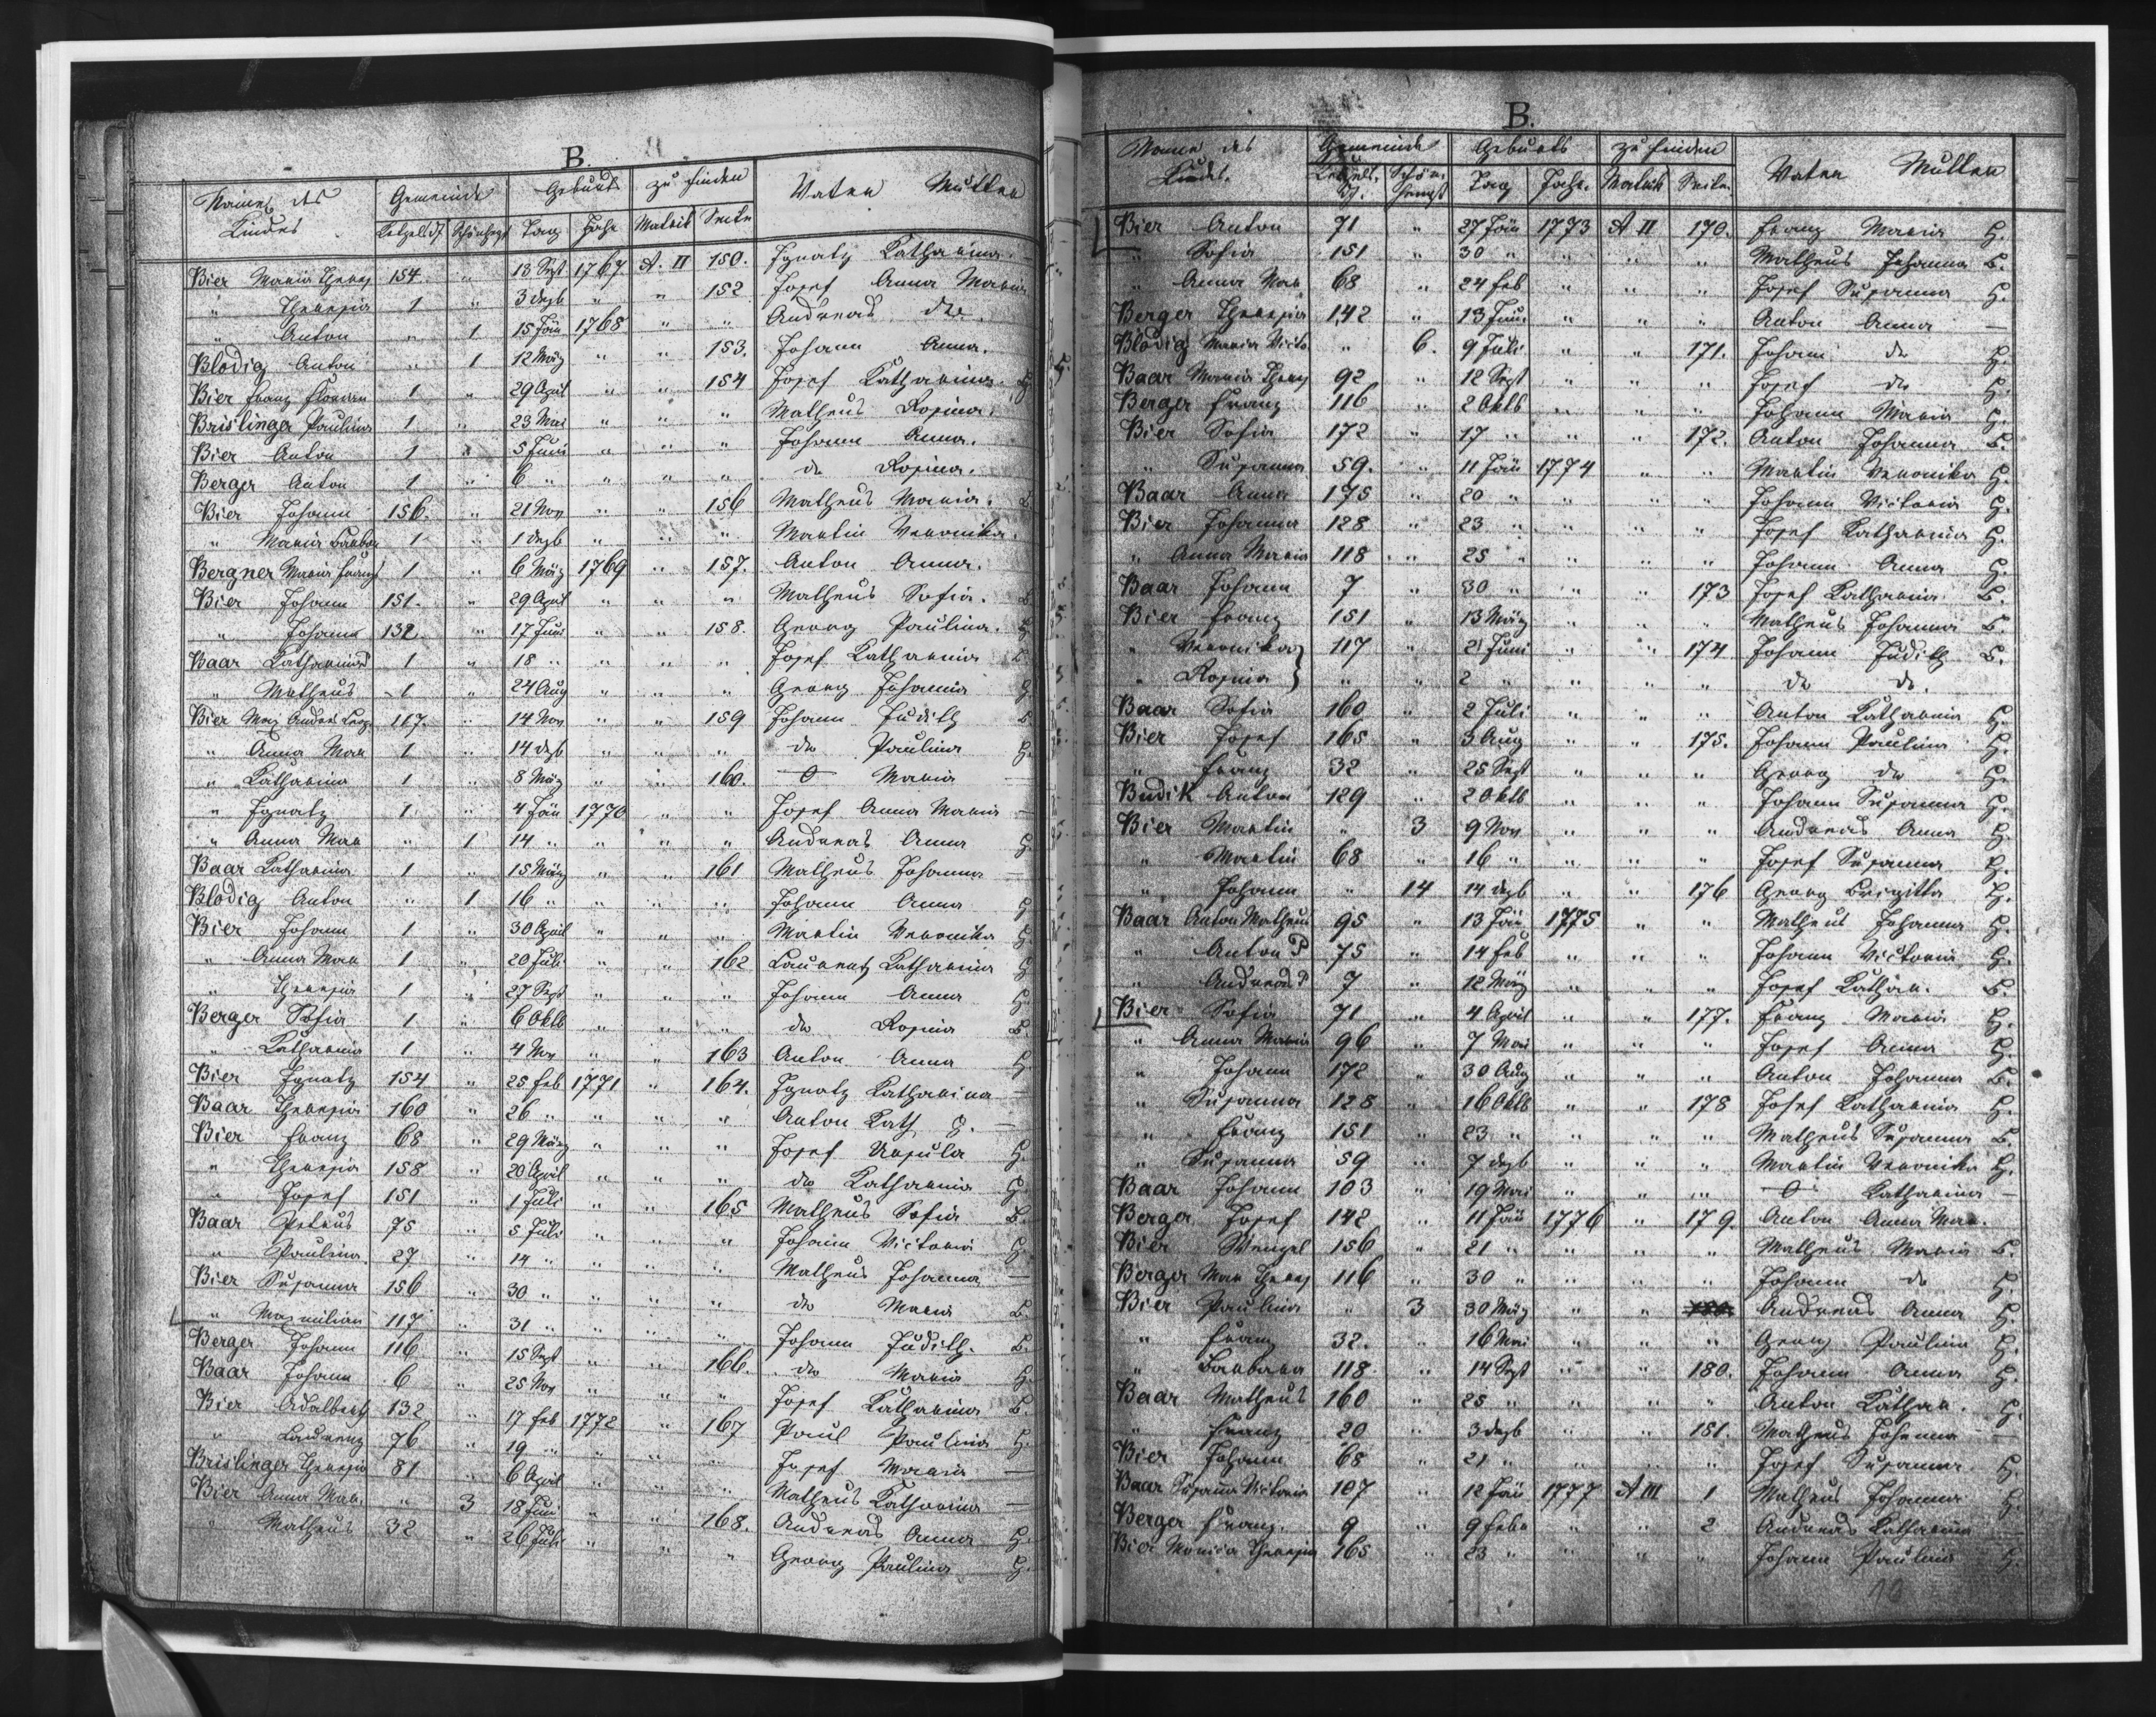 B.
Name des Gemeinde Geburts zu finden Vater Mutter
Kindes Ketzelsdf Schönhengst Tag Jahr Matrik Seite
Bier Maria Theres 154. " 13 Sept 1767 A. II 150. Ignatz Katharina.
" Theresia 1 " 3 dezb " " 152 Josef Anna Maria
" Anton " 1 15 Jän 1768 " " Andreas dto.
Blodig Anton " 1 12 März " " 153. Johann Anna.
Bier Franz Florian 1 " 29 April " " 154 Josef Katharina. H
Brislinger Paulina 1 " 23 Mai " " " Matheus Rosina.
Bier Anton 1 " 5 Juni " " " Johann Anna.
Berger Anton 1 " 6 " " " " do Rosina.
Bier Johann 156. " 21 Nov " " 156 Matheus Maria. B
" Maria Barbar 1 " 1 dezb " " " Martin Veronika.
Bergner Maria Franzs 1 " 6 März 1769 " 157. Anton Anna.
Bier Johann 151. " 29 April " " " Matheus Sofia. B
" Johann 132. " 17 Juni " " 158. Georg Paulina. H
Baar Katharina 1 " 18 " " " " Josef Katharina B
" Matheus 1 " 24 Aug " " " Georg Johanna H
Bier Max Andres Leop. 117. " 14 Nov " " 159 Johann Judith B
" Anna Mar 1 " 14 dezb " " " do Paulina H.
" Katharina 1 " 8 März " " 160. O Maria —
" Ignatz 1. " 4 Jän 1770 " " Josef Anna Maria —
" Anna Mar " 1 14 " " " " Andreas Anna H.
Baar Katharina 1 " 15 März " " 161 Matheus Johanna —
Blodig Anton " 1 16 " " " " Johann Anna H
Bier Johann 1 " 30 April " " " Martin Veronika H.
" Anna Mar 1 " 20 Juli " " 162 Laurentz Katharina H
" Theresia 1 " 27 Sept " " " Johann Anna H
Berger Sofia 1 " 6 Oktb " " " do Rosina B
" Katharina 1 " 4 Nov " " 163 Anton Anna H
Bier Ignatz 154 " 25 feb 1771 " 164. Ignatz Katharina —
Baar Theresia 160 " 26 " " " " Anton Kath H. —
Bier Franz 68 " 29 März " " " Josef Ursula H.
" Theresia 158 " 20 April " " " do Katharina H.
" Josef 151 " 1 Juli " " 165 Matheus Sofia B.
Baar Petrus 75 " 5 Juli " " " Johann Victoria H
" Paulina. 27 " 14 " " " " Matheus Johanna —
Bier Susanna 156 " 30 " " " " do Maria B
" Maximilian 117 " 31 " " " " Johann Judith. B.
Berger Johann 116 " 15 Sept " " 166. do Maria H.
Baar Johann 6 " 25 Nov " " " Josef Katharina B.
Bier Adalbert 132 " 17 feb 1772 " 167 Paul Paulina H.
" Laurenz 76 " 19 " " " " Josef Maria —
Brislinger Theresia 81 " 6 April " " " Matheus Katharina —
Bier Anna Mar. " 3 18 Juni " " 168. Andreas Anna H.
" Matheus 32 " 26 Juli " " " Georg Paulina H.
B.
Name des Gemeinde Geburts zu finden Vater Mutter
Kindes. Ketzelsdf. Schönhengst Tag Jahr. Matrik Seite.
Bier Anton 71 " 27 Jän 1773 A II 170. Franz Maria H.
" Sofia 151 " 30 " " " " Matheus Johanna B.
" Anna Mar 68 " 24 feb " " " Josef Susanna H.
Berger Theresia 142 " 13 Juni " " " Anton Anna —
Blodig Maria Victo " 6. 9 Juli " " 171. Johann do H.
Baar Maria Theres 92 " 12 Sept " " " Josef do H.
Berger Franz 116 " 2 Oktb " " " Johann Maria H.
Bier Sofia 172 " 17 " " " 172. Anton Johanna B.
" Susanna 59. " 11 Jän 1774 " " Martin Veronika H.
Baar Anna 175 " 20 " " " " Johann Victoria H.
Bier Johanna 128 " 23 " " " " Josef Katharina H.
" Anna Maria 118 " 25 " " " " Johann Anna H.
Baar Johann 7 " 30 " " " 173 Josef Katharina B.
Bier Franz 151 " 13 März " " " Matheus Johanna B.
" Veronika } 117 " 2 Juni " " 174 Johann Judith B.
" Rosina } " " 2 " " " " do do.
Baar Sofia 160 " 2 Juli " " " Anton Katharina H.
Bier Josef 165 " 3 Aug " " 175. Johann Paulina H.
" Franz 32 " 25 Sept " " " Georg do H.
Budik Anton 129 " 2 Oktb " " " Johann Susanna H.
Bier Martin " 3 9 Nov " " " Andreas Anna H.
" Martin 68 " 16 " " " " Josef Susanna H.
" Johann " 14 14 dezb " " 176 Georg Brigitta H.
Baar Anton Matheus 95 " 13 Jän 1775 " " Matheus Johanna H.
" Anton P 75 " 14 feb " " " Johann Victoria H.
" Andreas P 7 " 12 März " " " Josef Kathar. B.
Bier Sofia 71 " 4 April " " 177. Franz Maria H.
" Anna Maria 96 " 7 Mai " " " Josef Anna H.
" Johann 172 " 30 Aug " " " Anton Johanna B.
" Susanna 128 " 16 Oktb " " 178 Josef Katharina H.
" Franz 151 " 23 " " " " Matheus Susanna B.
" Susanna 59 " 7 dezb " " " Martin Veronika H.
Baar Johann 103 " 19 Mai " " " O Katharina —
Berger Josef 142 " 11 Jän 1776 " 179. Anton Anna Mar.
Bier Wenzel 156 " 21 " " " " Matheus Maria B.
Berger Mar Theres 116 " 30 " " " " Johann do H.
Bier Paulina " 3 30 März " " 180. Andreas Anna H.
" Franz 32. " 16 Mai " " " Georg Paulina H.
" Barbara 118 " 14 Sept " " 180. Johann Anna H.
Baar Matheus 160 " 25 " " " " Anton Kathar. H.
" Franz 20 " 3 dezb " " 181. Matheus Johanna —
Bier Johann 68 " 21 " " " " Josef Susanna. H.
Baar Susanna Victoria 107 " 12 Jän 1777 A III 1 Matheus Johanna H.
Berger Franz. 9 " 9 febr " " 2 Andreas Katharina —
Bier Maria Theresia 165 " 23 " " " " Johann Paulina H.
10